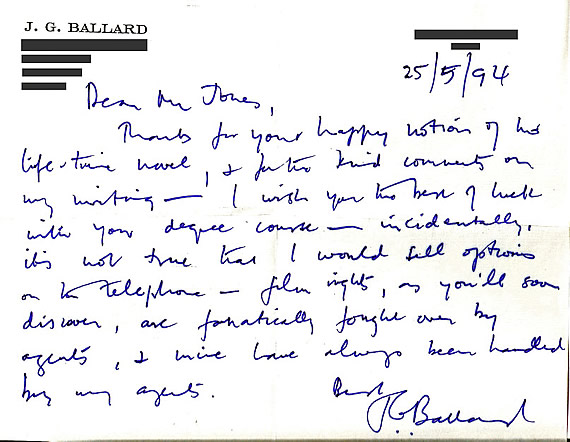 J. G. BALLARD
25/5/94
Dear Mr Jones,
Thanks for your happy notion of the
life-time novel, & for the kind comments on
my writing — I wish you the best of luck
with your degree course — incidentally,
it's not true that I would sell options
on the telephone — film rights, as you'll soon
discover, are fanatically fought over by
agents, & mine have always been handled
by my agents.
Best
JG Ballard